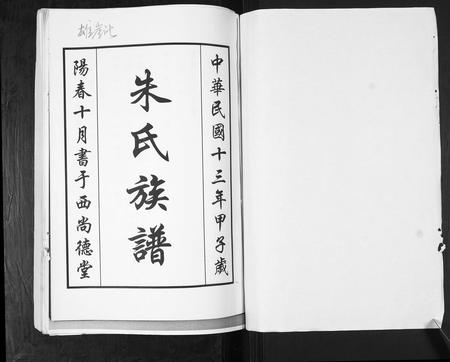 中華民國十三年甲子歲
朱氏族譜
陽春十月書于西尚德堂